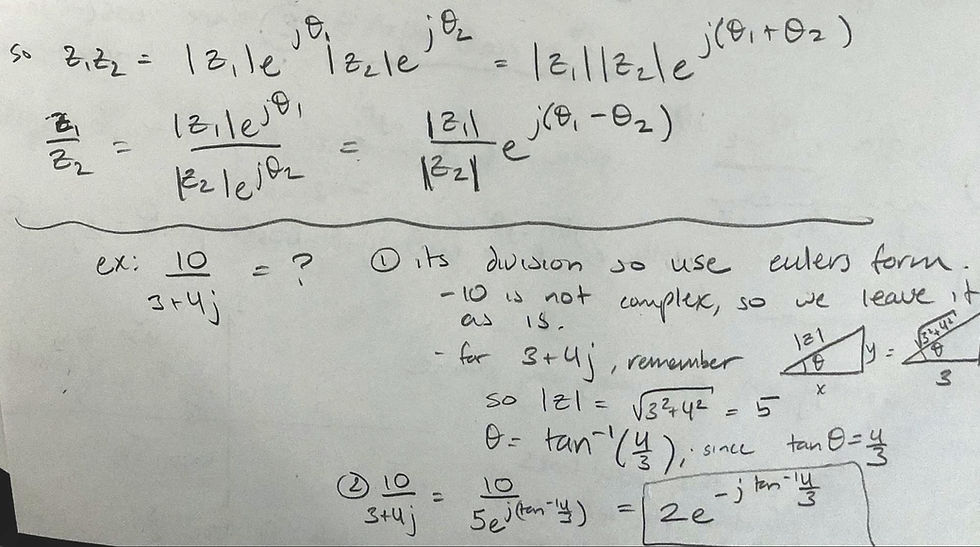 so z₁z₂ = |z₁|e^{jθ₁}|z₂|e^{jθ₂} = |z₁||z₂|e^{j(θ₁+θ₂)}
z₁/z₂ = |z₁|e^{jθ₁}/|z₂|e^{jθ₂} = |z₁|/|z₂| e^{j(θ₁-θ₂)}
ex: 10/(3+4j) = ?
① its division so use eulers form.
- 10 is not complex, so we leave it
as is.
- for 3+4j, remember |z| θ y x = √3²+4² θ 3
so |z| = √3²+4² = 5
θ = tan⁻¹(4/3), since tanθ = 4/3
② 10/(3+4j) = 10/5e^{j(tan⁻¹4/3)} = 2e^{-j tan⁻¹4/3}